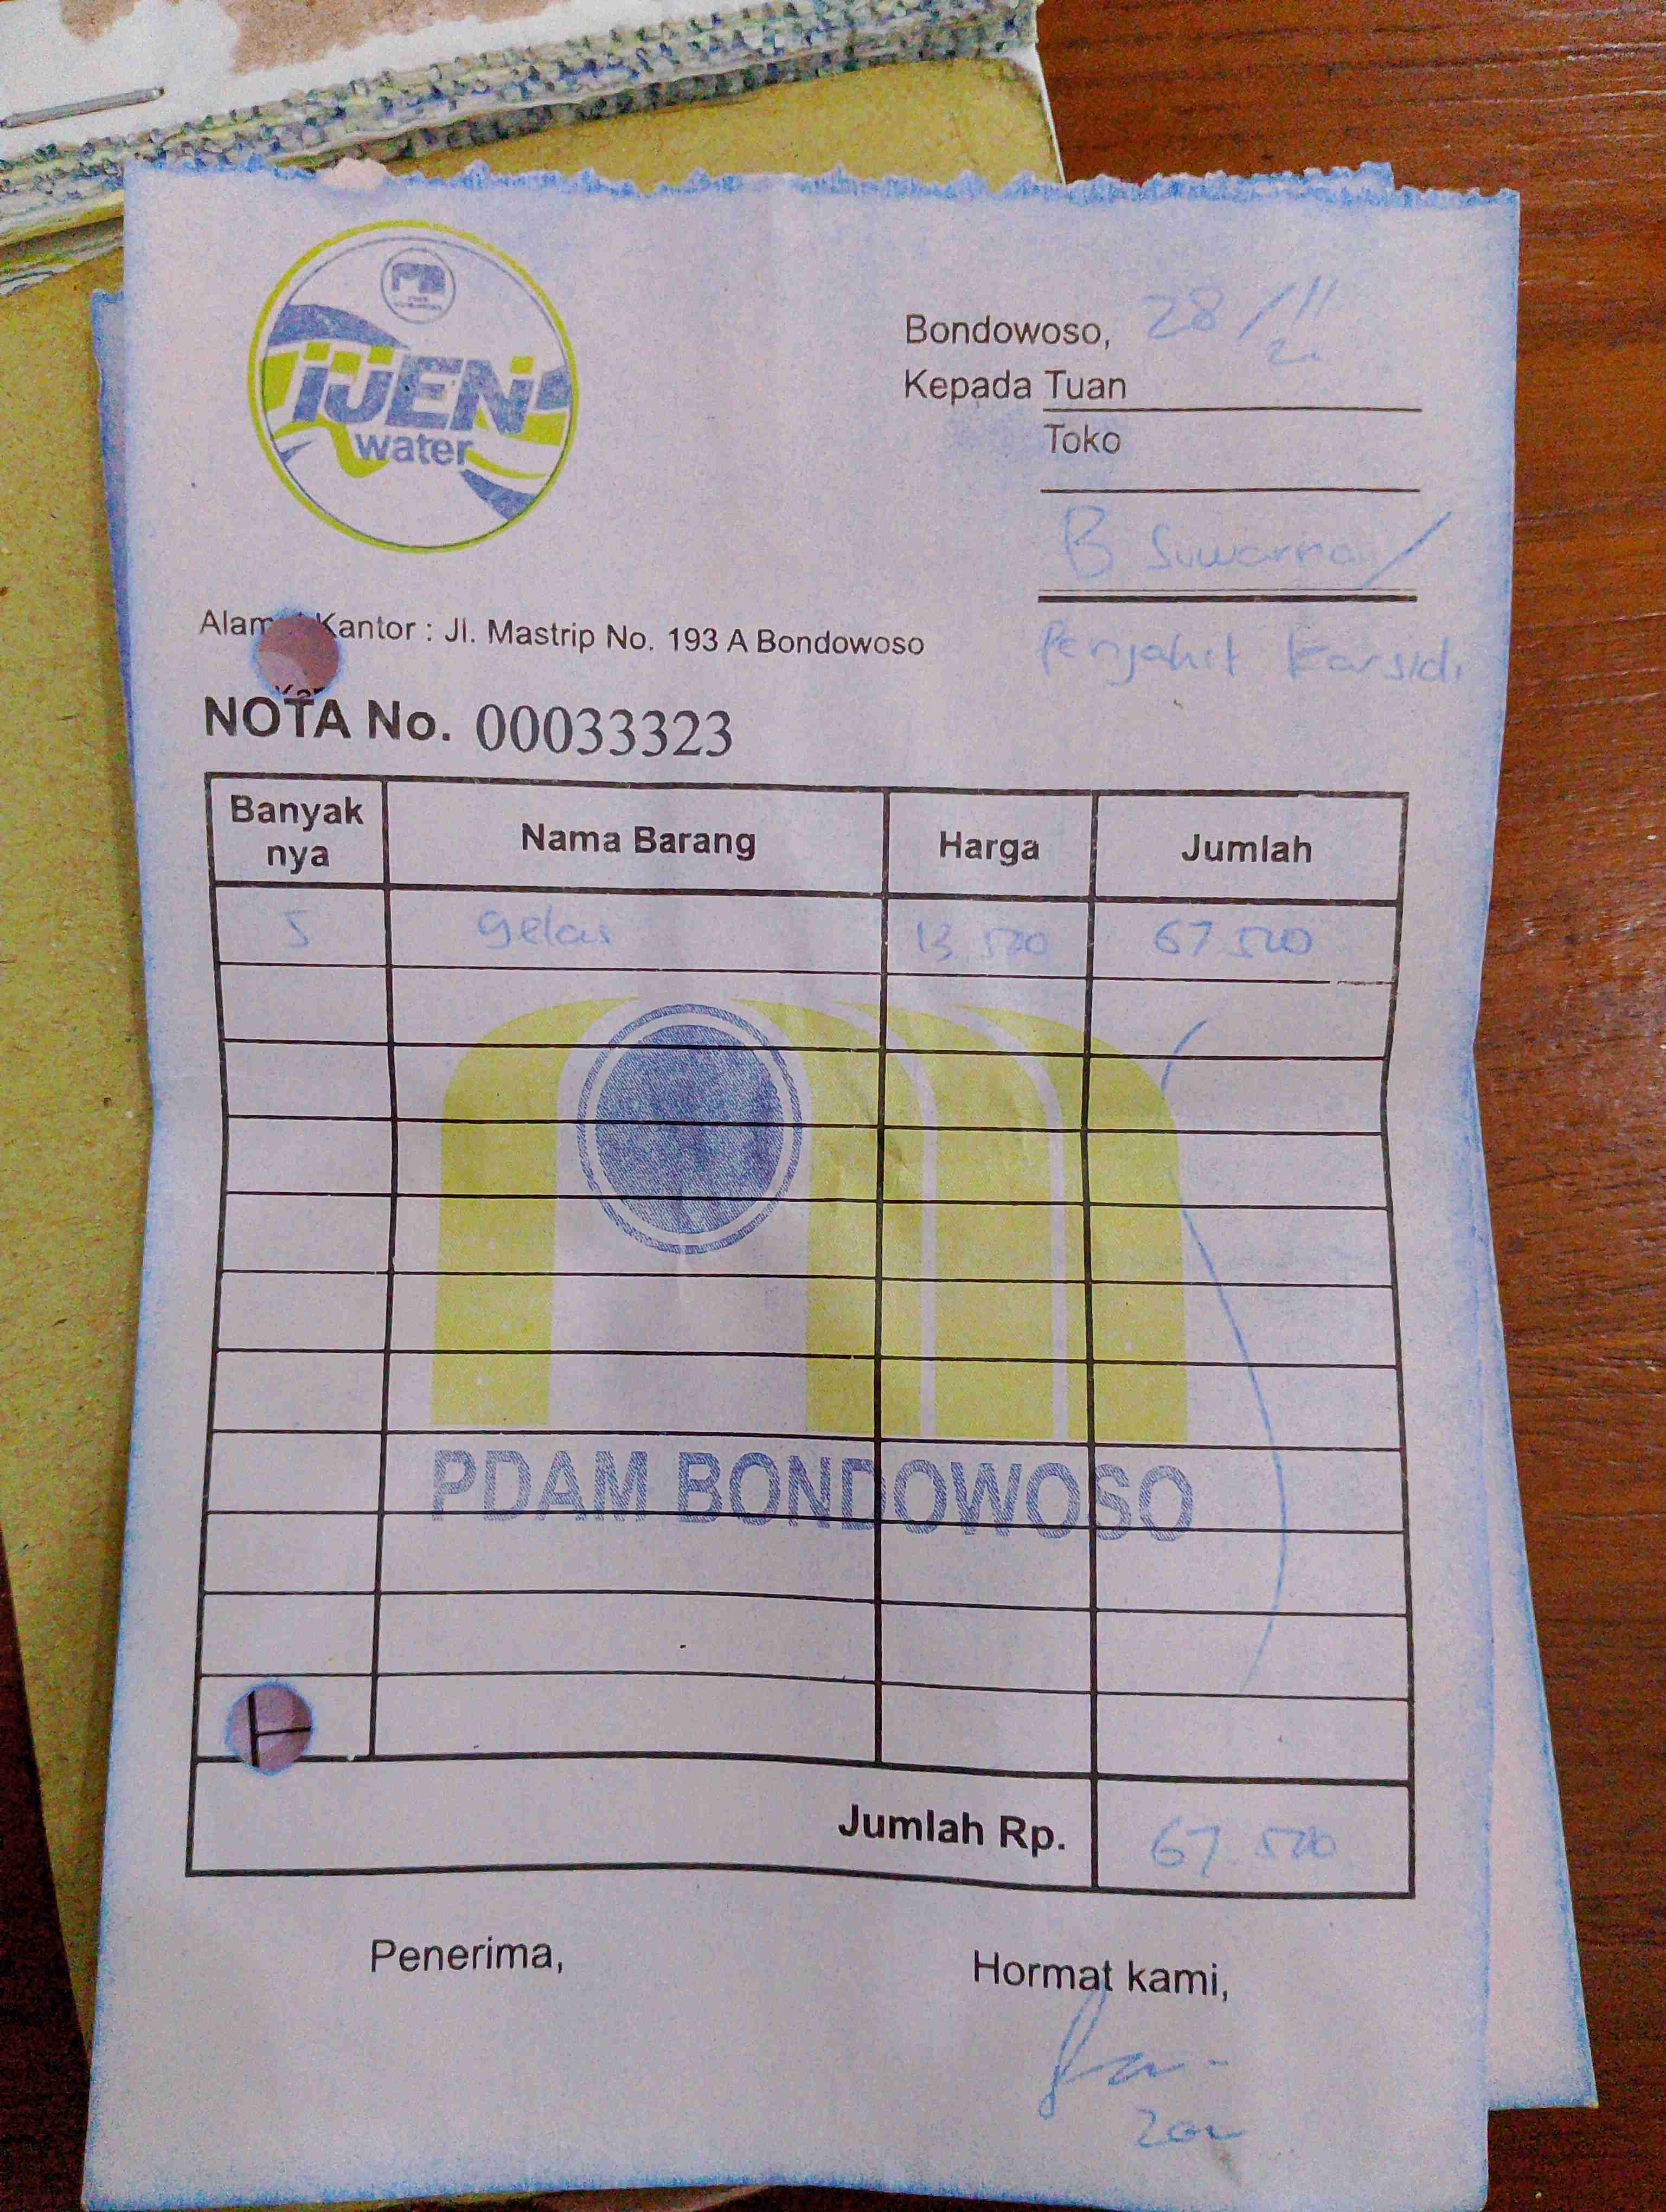 IJEN
water
Bondowoso, 28/11
Kepada Tuan
Toko
B Suwarna/
Penjahit Karsidi
Kantor : Jl. Mastrip No. 193 A Bondowoso
NOTA No. 00033323
Banyak nya Nama Barang Harga Jumlah
5 gelas 13.500 67.500
PDAM BONDOWOSO
Jumlah Rp. 67.500
Penerima, Hormat kami,